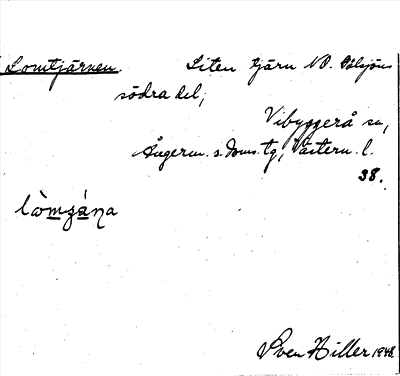 Lomtjärnen. Liten tjärn NO. Valsjöns
södra del;
Vibyggerå sn,
Ångerm. s. doms. tg, Västern. l.
38.
lòmʒána
Sven Hiller 1948.